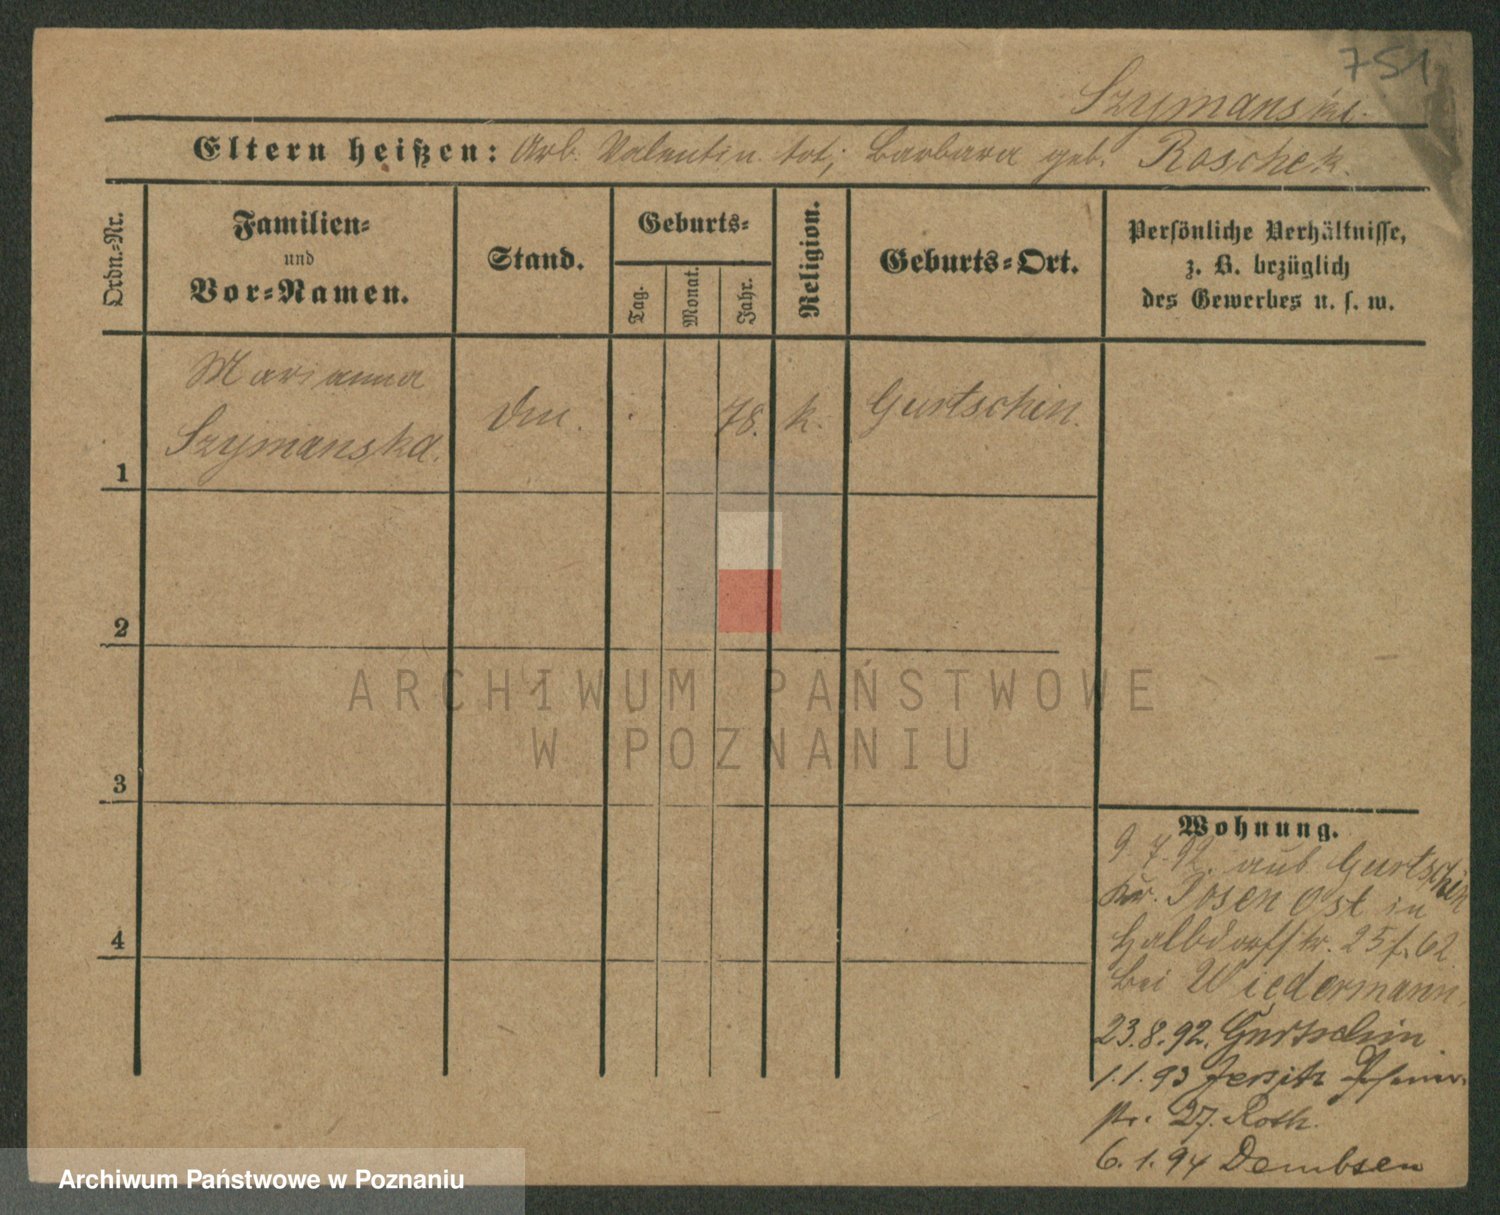 751
Szymanski.
Eltern heißen: Arb. Valentin tot; Barbara geb. Roschek.
Ordn.-Nr.
Familien-
und
Vor-Namen.
Stand.
Geburts-
Tag.
Monat.
Jahr.
Religion.
Geburts-Ort.
Persönliche Verhältnisse,
z. B. bezüglich
des Gewerbes u. s. w.
Marianna
Szymanska.
1
78.
k.
Gurtschin.
2
3
4
Wohnung.
9.7.92. aus Gurtschin
Kr. Posen Ost in
Halbdorfstr. 25 f. 62
bei Wiedermann.
23.8.92. Gurtschin
1.1.93 Jersitz
str. 27. Roth.
6.1.94 Dembsen
ARCHIWUM PAŃSTWOWE
W POZNANIU
Archiwum Państwowe w Poznaniu